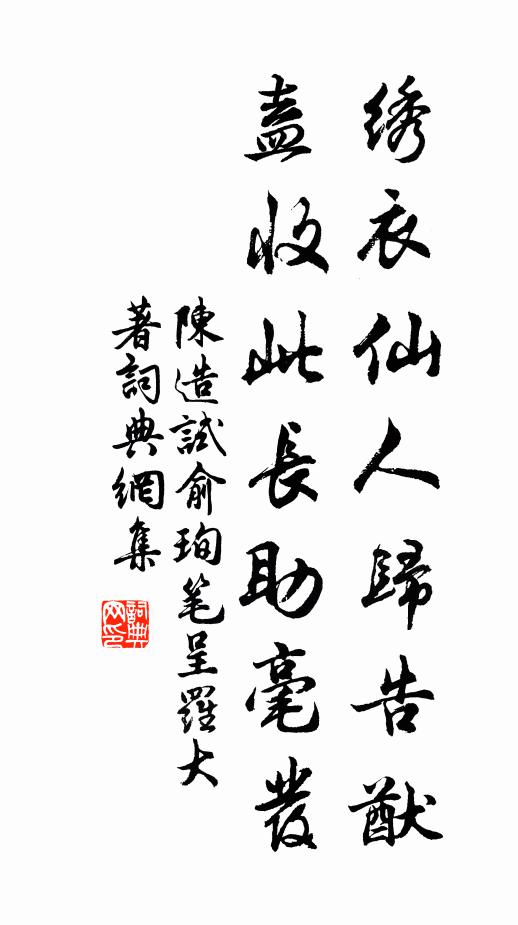 绣衣仙人歸告猷
盍收此長助毫發
陳造試俞珣笔呈羅大
著詞典網集
詞典
网印